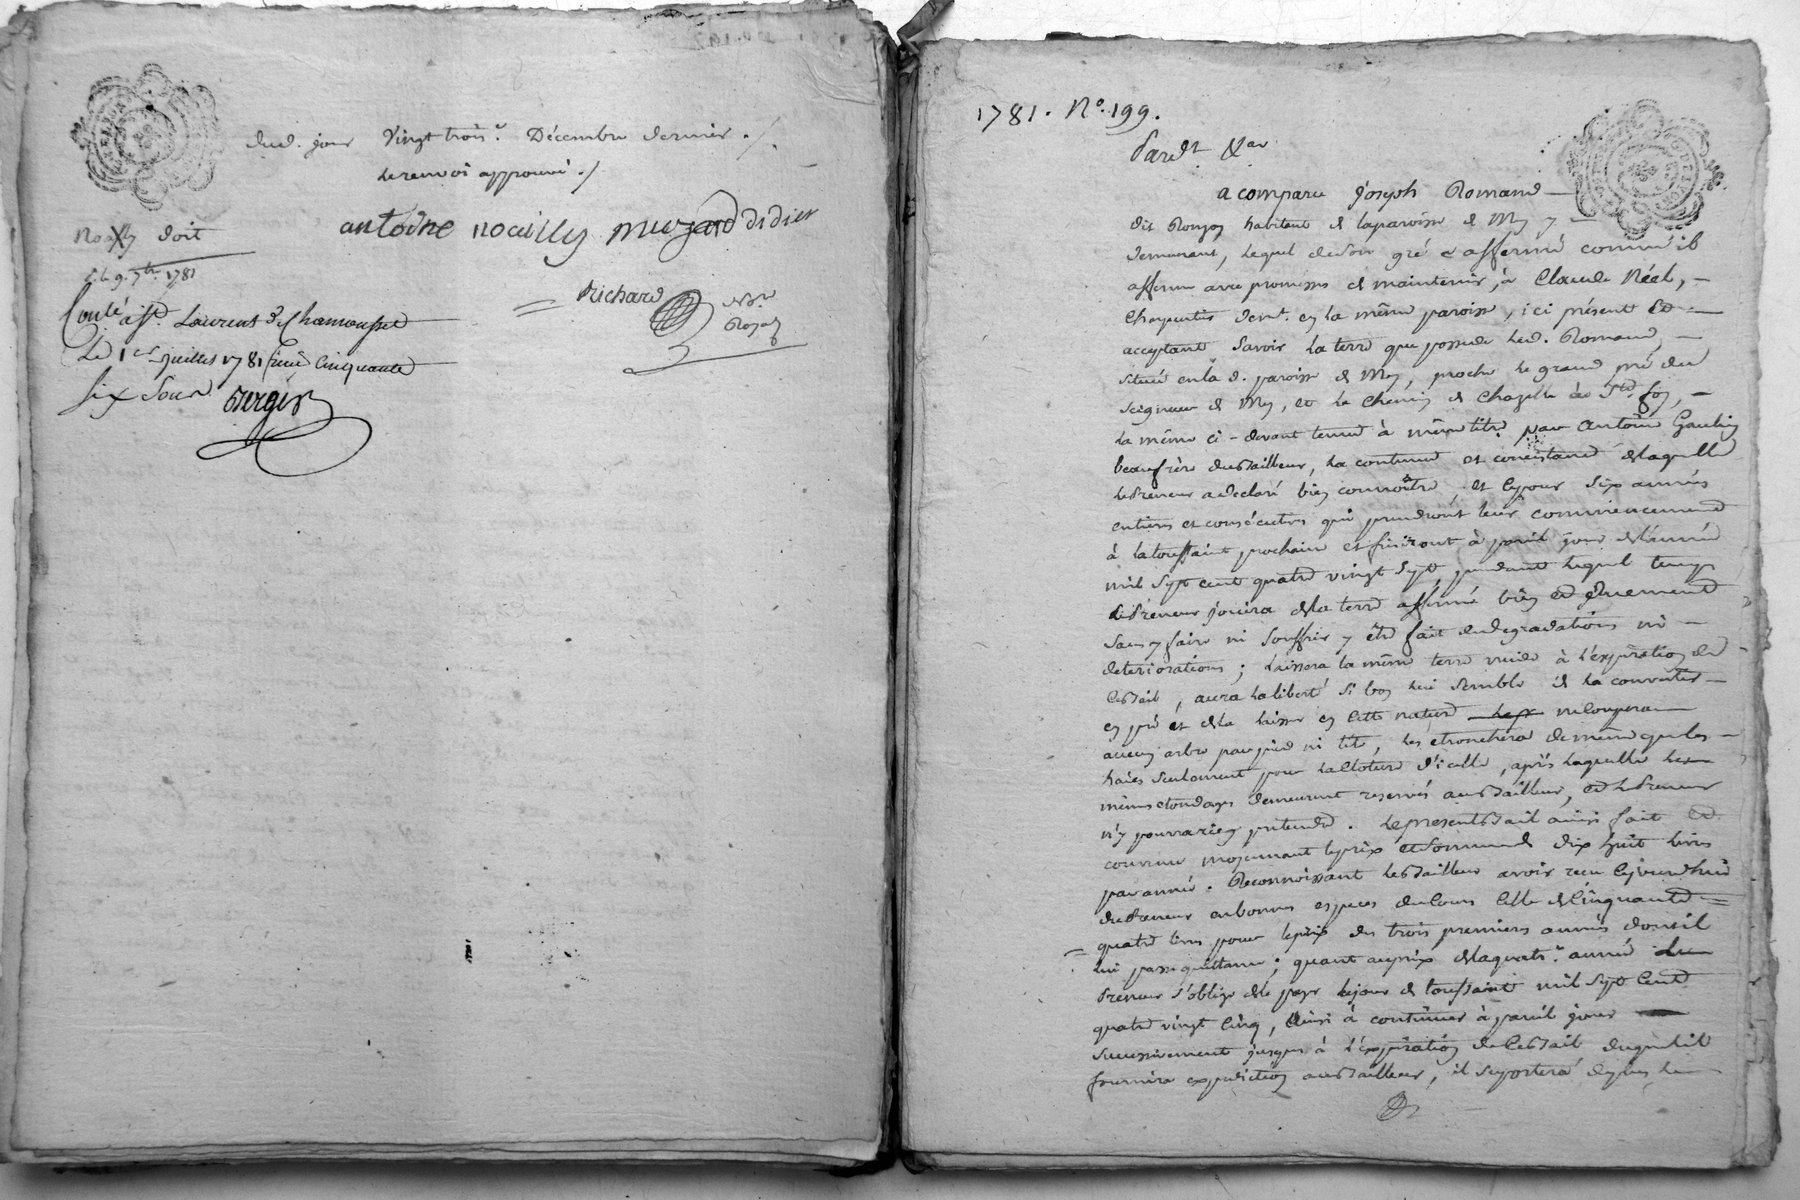 dud. jour Vingt trois.e Décembre dernier ./.
le renvoi approuvé ./
antoine noailly muzard didier
Noally doit
le 9. 7bre 1781
Richard
No.re
Royal
Conlé à St. Laurent de Chamousset
Le 1er juillet 1781 Reçu Cinquante
six sous
Bergis
1781. No. 199.
Pardt &ar
a comparu joseph Romand
dit Ronjon habitant de la paroisse de Mey y
demeurant, lequel de son gré a affermé comme il
afferme avec promesses de maintenir, à Claude Réal,
Charpentier demt. en la même paroisse, ici présent et
acceptant Savoir la terre que possede led. Romand,
située en la d. paroisse de Mey, proche le grand pré du
seigneur de Mey, et le chemin de Chazelle à Ste. foy,
la même ci-devant tenue à même titre par antoine Gaulin
beaufrère du Bailleur, la contenue et consistance de laquelle
le Preneur a declaré bien connoître, et ce pour six années
entieres et consécutives qui prendront leur commencement
à la toussaint prochaine et finiront à pareil jour de l'année
mil sept cent quatre vingt sept, pendant lequel temps
le Preneur jouira de la terre affermée bien et duement
sans y faire ni souffrir y être fait de degradations ni
deteriorations; laissera la même terre vuide à l'expiration de
ce Bail, aura la liberté si bon lui semble de la convertir
en pré et de la laisser en cette nature ne coupera
aucun arbre par pied ni tête, les etronchera de même que les
haies seulement pour la cloture d'icelle, après laquelle les
mêmes tondages demeurent reservés au Bailleur, et le Preneur
n'y pourra rien pretendre. Le present Bail ainsi fait et
convenu moyennant le prix et somme de dix huit livres
par année. Reconnoissant le Bailleur avoir reçu cejourd'hui
du Preneur en bonnes especes de Cours celle de Cinquante
quatre livres pour le prix des trois premieres années dont il
lui passe quittance; quant au prix de la quatr.e année le
Preneur s'oblige de le payer le jour de toussaint mil sept Cent
quatre vingt Cinq, Ainsi à continuer à pareil jour
successivement jusques à l'expiration de ce Bail duquel il
fournira expedition au Bailleur, il suportera de plus le